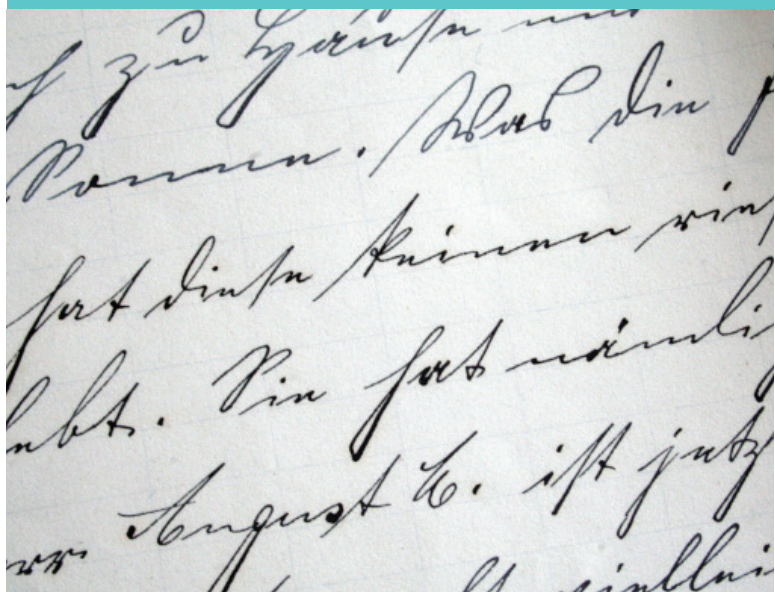 zu Hause und
Sonne. Was die
hat diese keinen
ebt. Sie hat nämli
August B. ist jetz
viellei